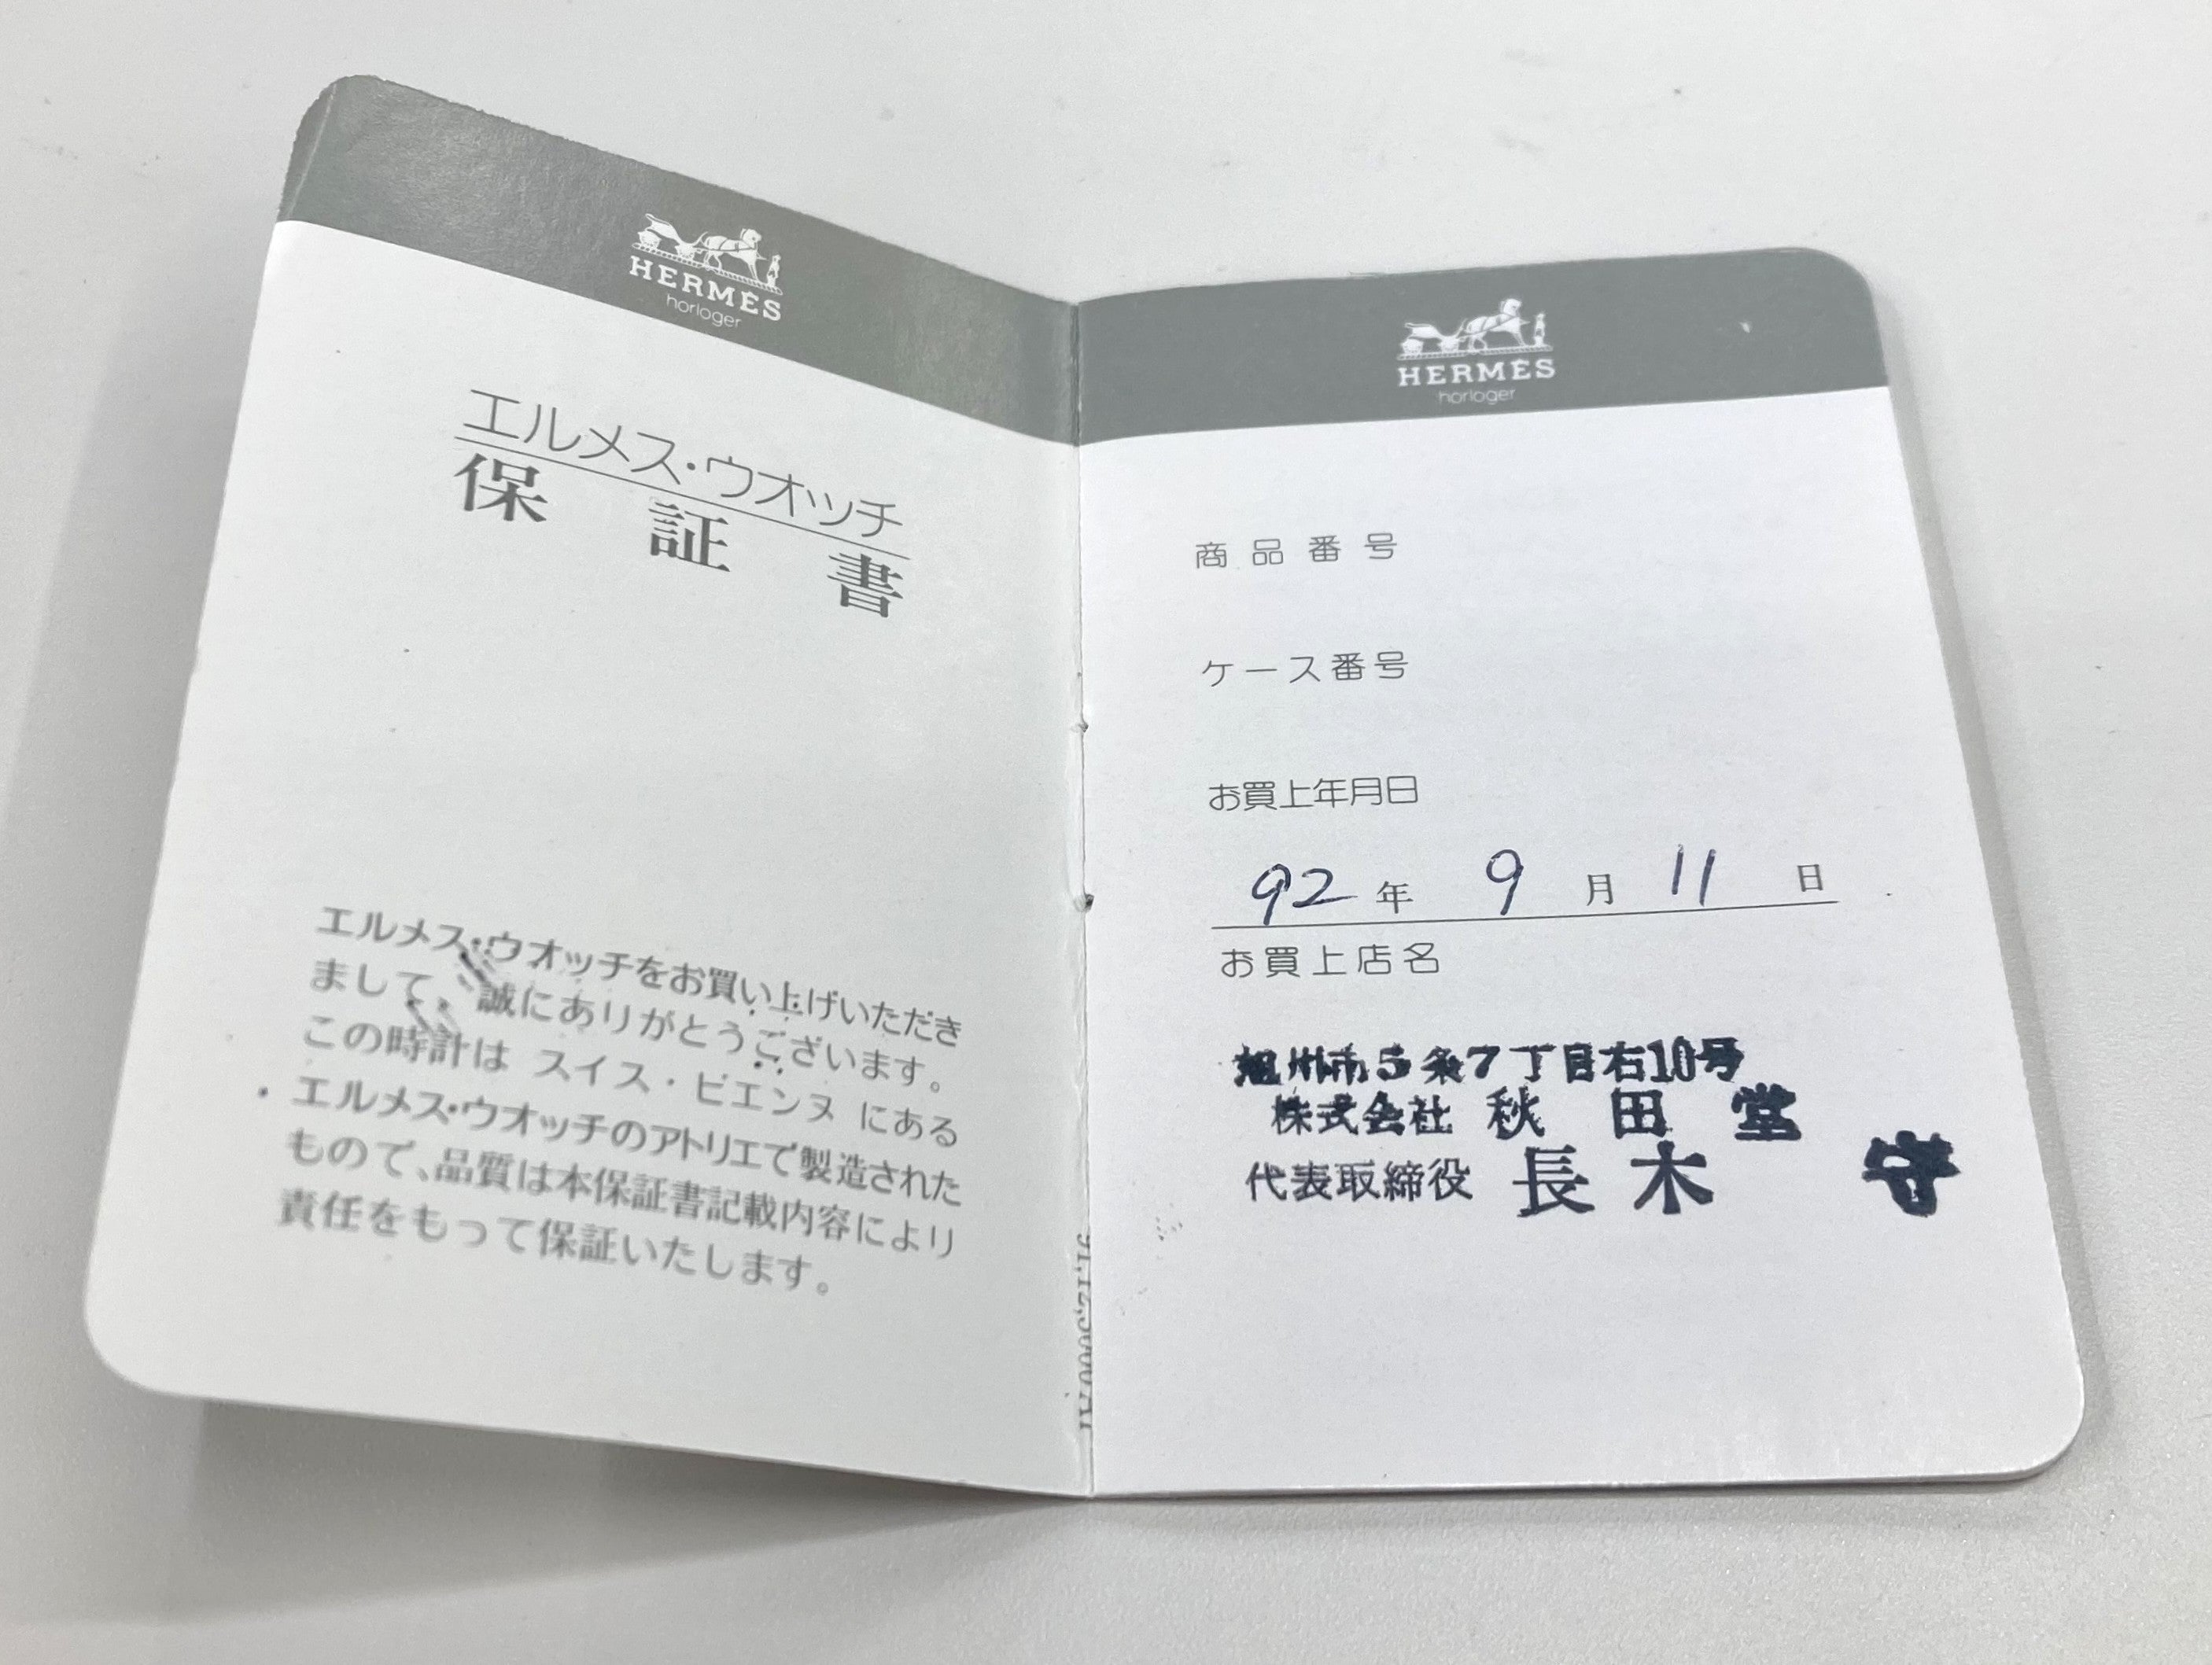 HERMÈS
horloger
エルメス・ウオッチ
保証書
エルメス・ウオッチをお買い上げいただき
まして、誠にありがとうございます。
この時計は スイス・ビエンヌ にある
エルメス・ウオッチのアトリエで製造された
もので、品質は本保証書記載内容により
責任をもって保証いたします。
HERMÈS
horloger
商品番号
ケース番号
お買上年月日
92年 9月 11日
お買上店名
旭川市5条7丁目右10号
株式会社 秋田堂
代表取締役 長木 守